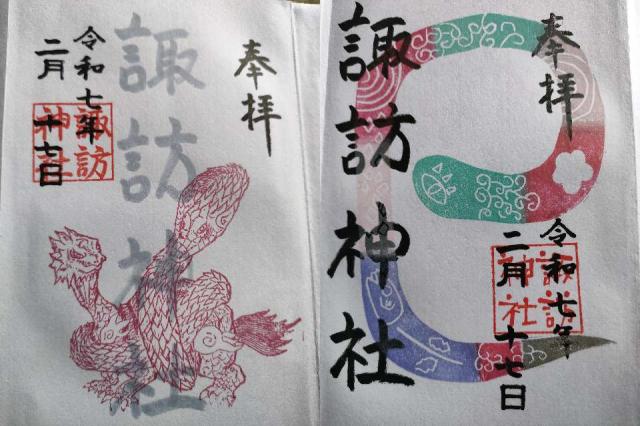 奉拝
諏訪神社
令和七年
二月十七日
諏訪
神社
奉拝
諏訪神社
令和七年
二月十七日
諏訪
神社